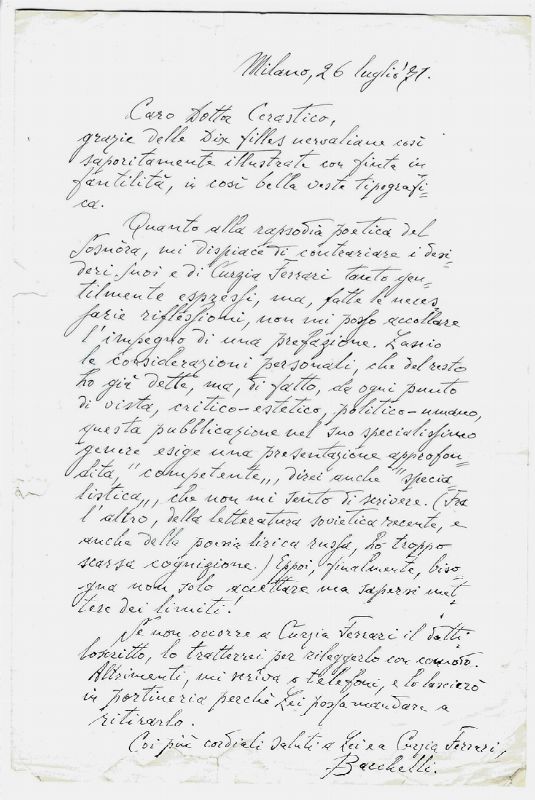 Milano, 26 luglio '71.
Caro Dotta Cerastico,
grazie delle Dix filles nervaliane così
saporitamente illustrate con finta in
fantilità, in così bella veste tipografi-
ca.
Quanto alla rapsodia poetica del
Sosnòra, mi dispiace di contrariare i desi-
deri Suoi e di Curzia Ferrari tanto gen-
tilmente espressi, ma, fatte le neces
sarie riflessioni, non mi posso accollare
l'impegno di una prefazione. Lascio
le considerazioni personali, che del resto
ho già dette, ma, di fatto, da ogni punto
di vista, critico-estetico, politico-umano,
questa pubblicazione nel suo specialissimo
genere esige una presentazione approfon-
dita, "competente,,, direi anche "specia
listica,,, che non mi sento di scrivere. (Fra
l'altro, della letteratura sovietica recente, e
anche della poesia lirica russa, ho troppo
scarsa cognizione.) Eppoi, finalmente, biso-
gna non solo accettare ma sapersi met-
tere dei limiti!
Se non occorre a Curzia Ferrari il datti-
loscritto, lo tratterrei per rileggerlo con comodo.
Altrimenti, mi scriva o telefoni, e lo lascerò
in portineria perchè Lei possa mandare a
ritirarlo.
Coi più cordiali saluti a Lei e a Curzia Ferrari,
Bacchelli.